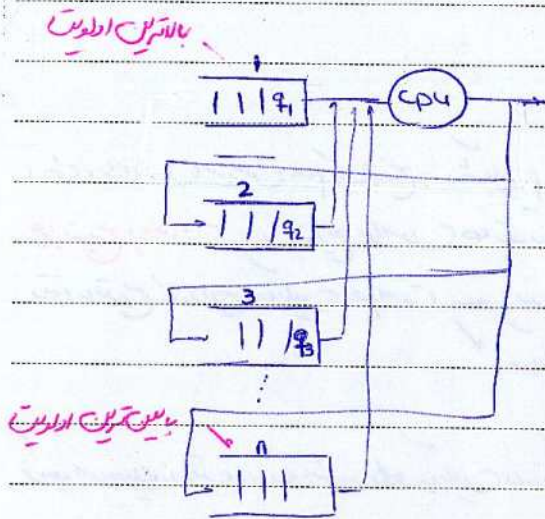 بالاترین اولویت
1
q₁
CPU
2
q₂
3
q₃
پایین ترین اولویت
n